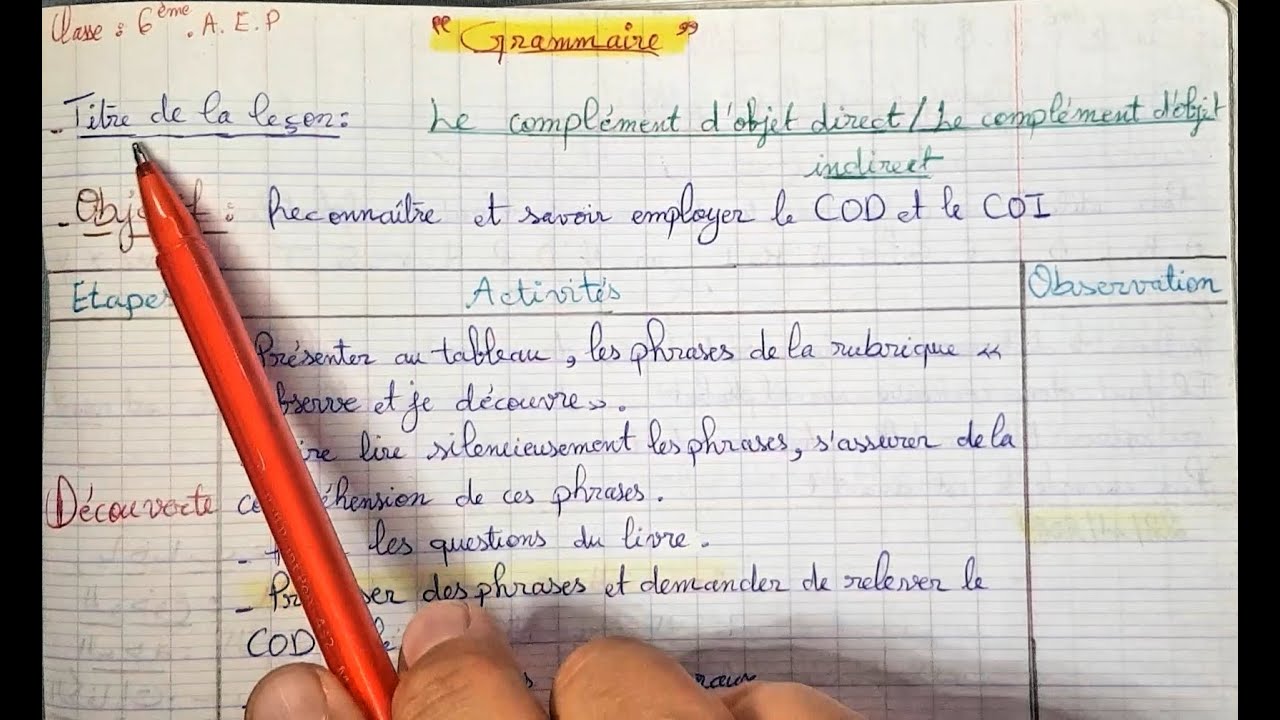 Classe : 6ème . A. E. P
" Grammaire "
- Titre de la leçon : Le complément d'objet direct / Le complément d'objet
indirect
- Objectif : Reconnaître et savoir employer le COD et le COI
Etapes Activités Observation
Présenter au tableau, les phrases de la rubrique «
observe et je découvre».
lire silencieusement les phrases, s'assurer de la
Découverte compréhension de ces phrases.
- les questions du livre.
- Proposer des phrases et demander de relever le
COD